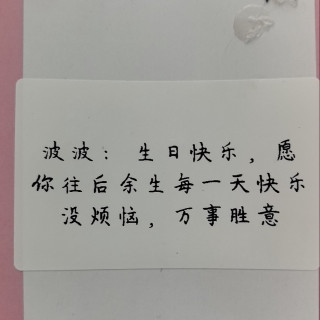 波波：生日快乐，愿
你往后余生每一天快乐
没烦恼，万事胜意